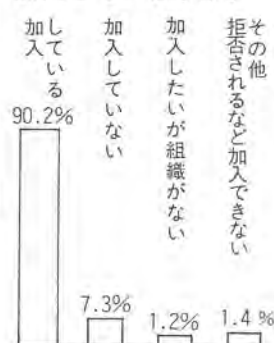 加入
している
90.2%
加入していない
7.3%
加入したいが組織がない
1.2%
拒否されるなど加入できない
その他
1.4%